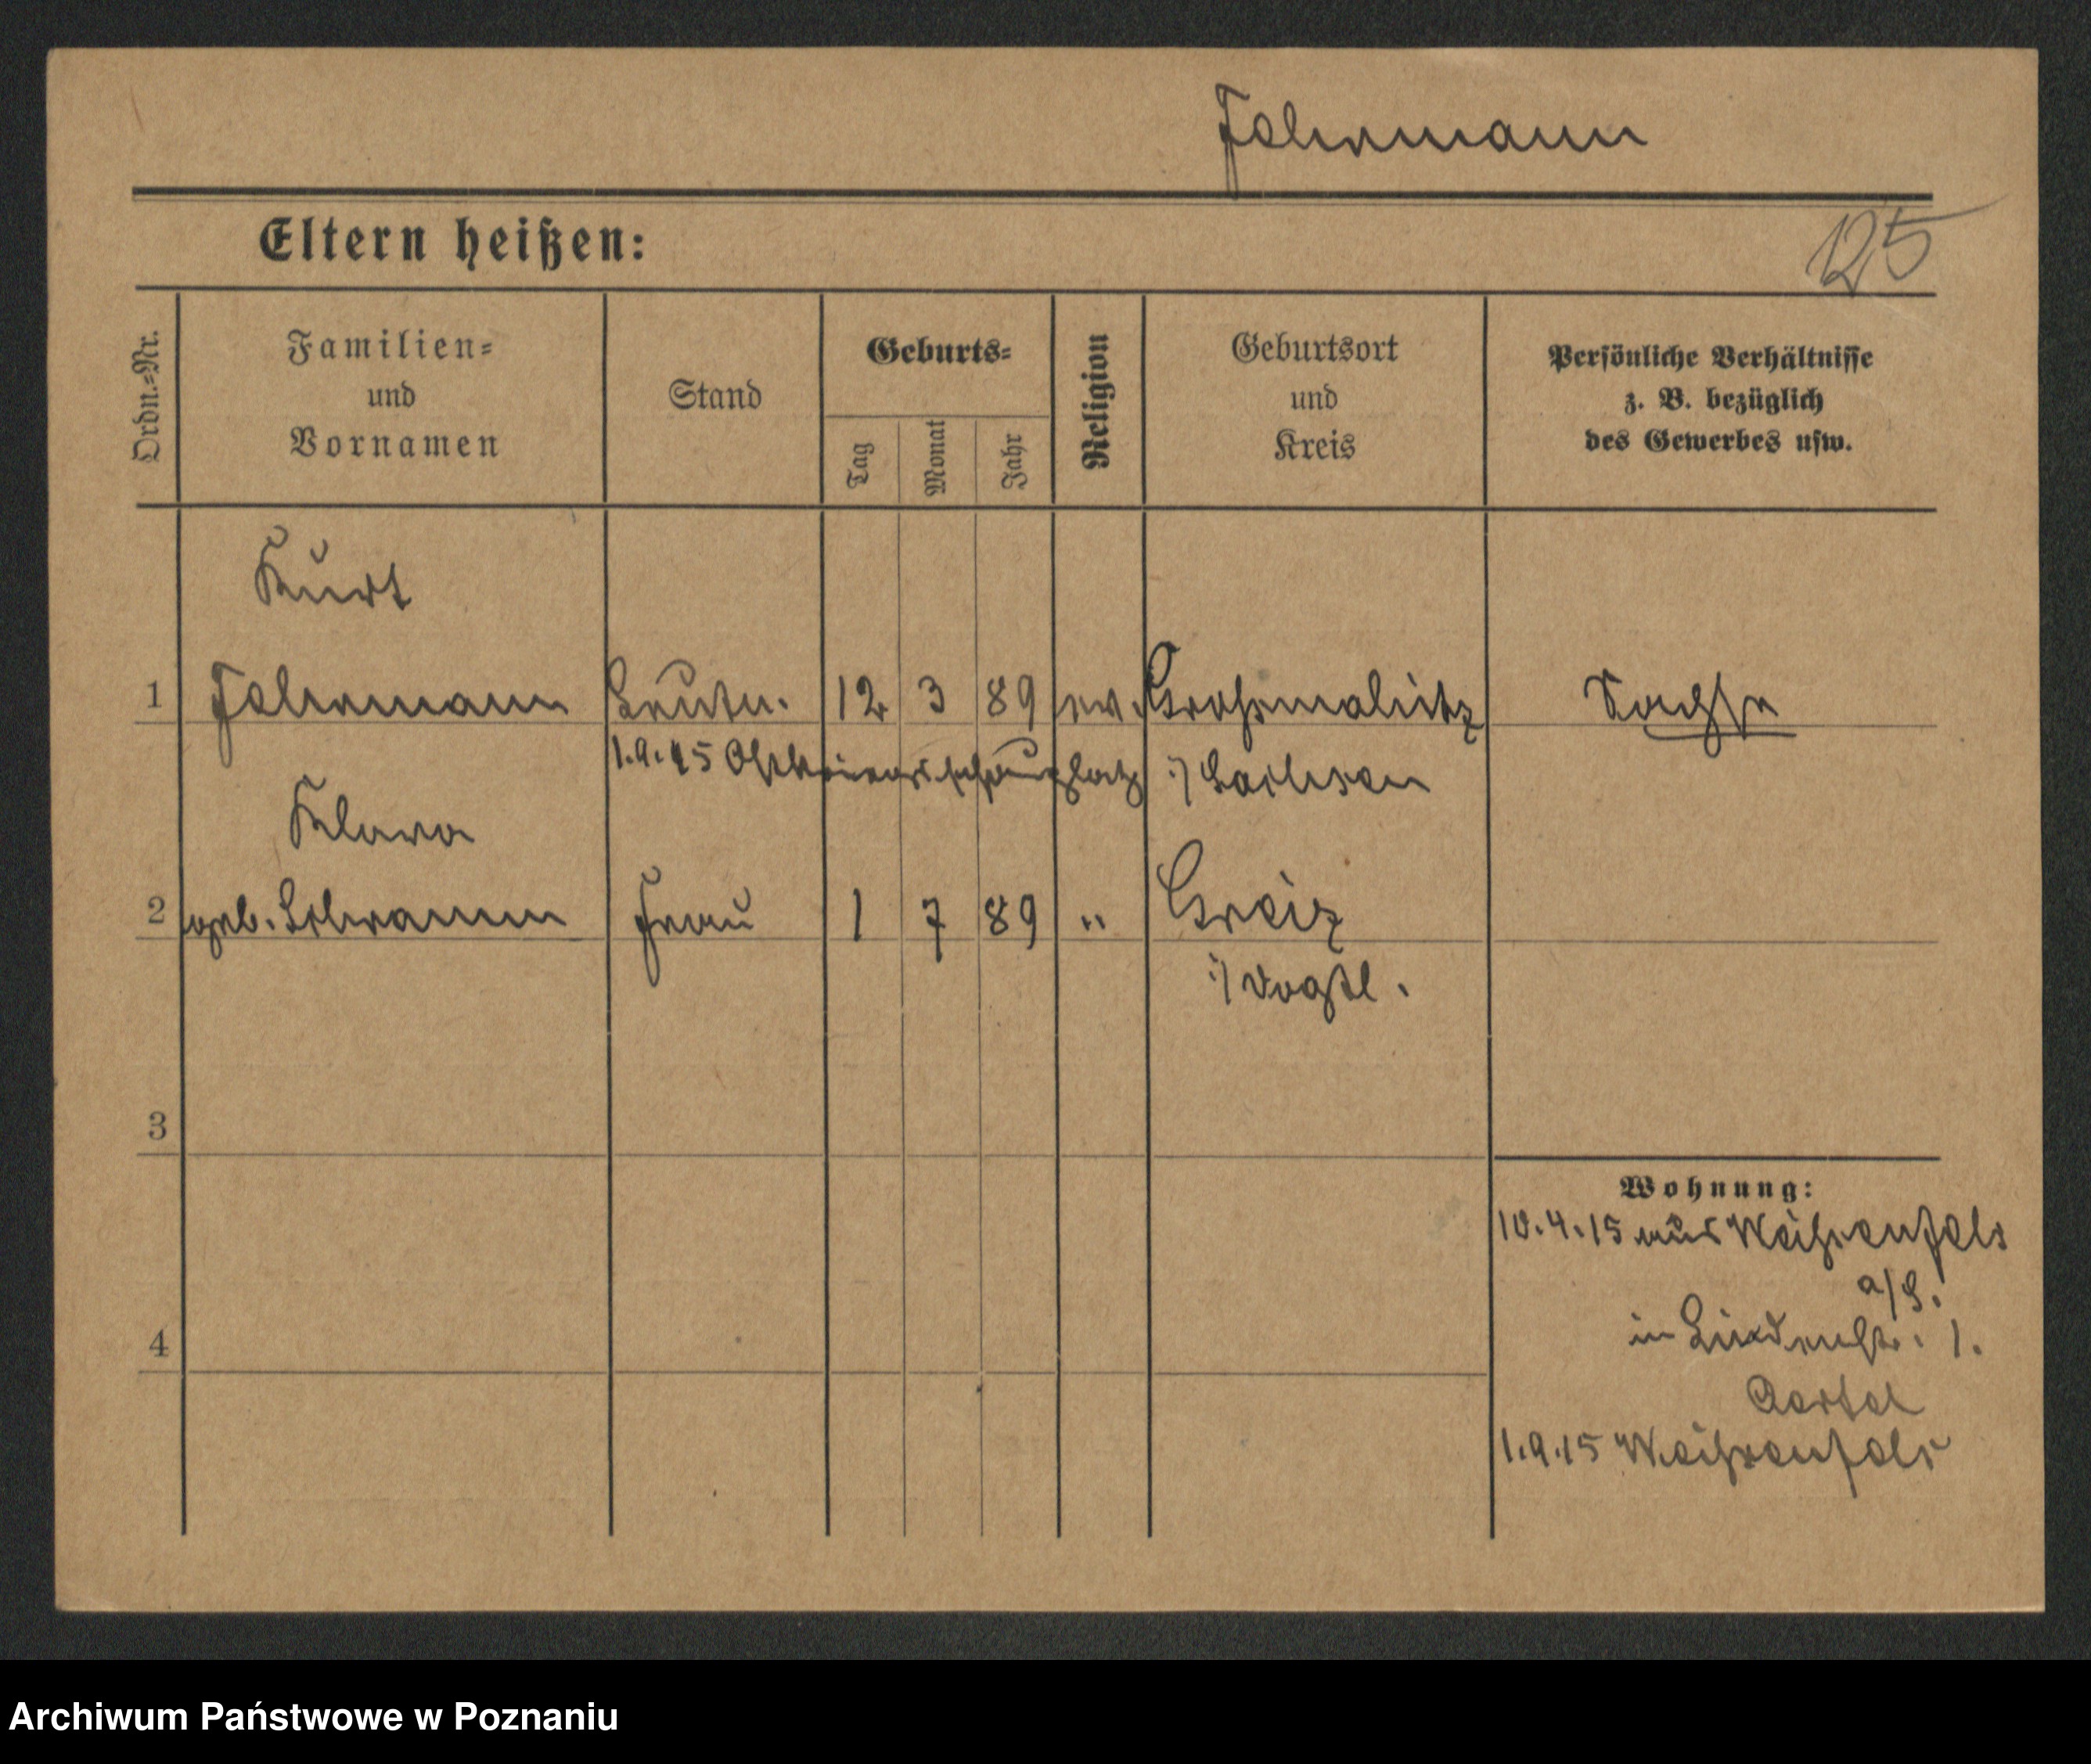 Fehrmann
125
Eltern heißen:
Ordn.=Nr.
Familien=
und
Vornamen
Stand
Geburts=
Tag
Monat
Jahr
Religion
Geburtsort
und
Kreis
Persönliche Verhältnisse
z. B. bezüglich
des Gewerbes usw.
Kurt
1 Fehrmann Leutn. 12 3 89 ev. Sachse
1.9.15 i/ Sachsen
Klara
2 geb. Schramm Frau 1 7 89 " Greiz
i/ Vogtl.
3
Wohnung:
10.4.15 aus Weißenfels
a/S.
4 in Lindenstr. 1.
1.9.15 Weißenfels
Archiwum Państwowe w Poznaniu